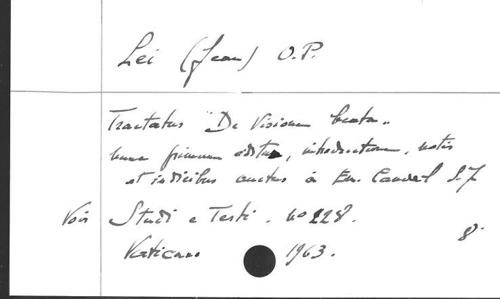 Lei (Jean) O.P.
Tractatus "De Visione beata"
nunc primum editus, introductione, notis
et indicibus auctus a Em. Candal S.J
Voir Studi e Testi. no 228.
Vaticano 1963. 8°